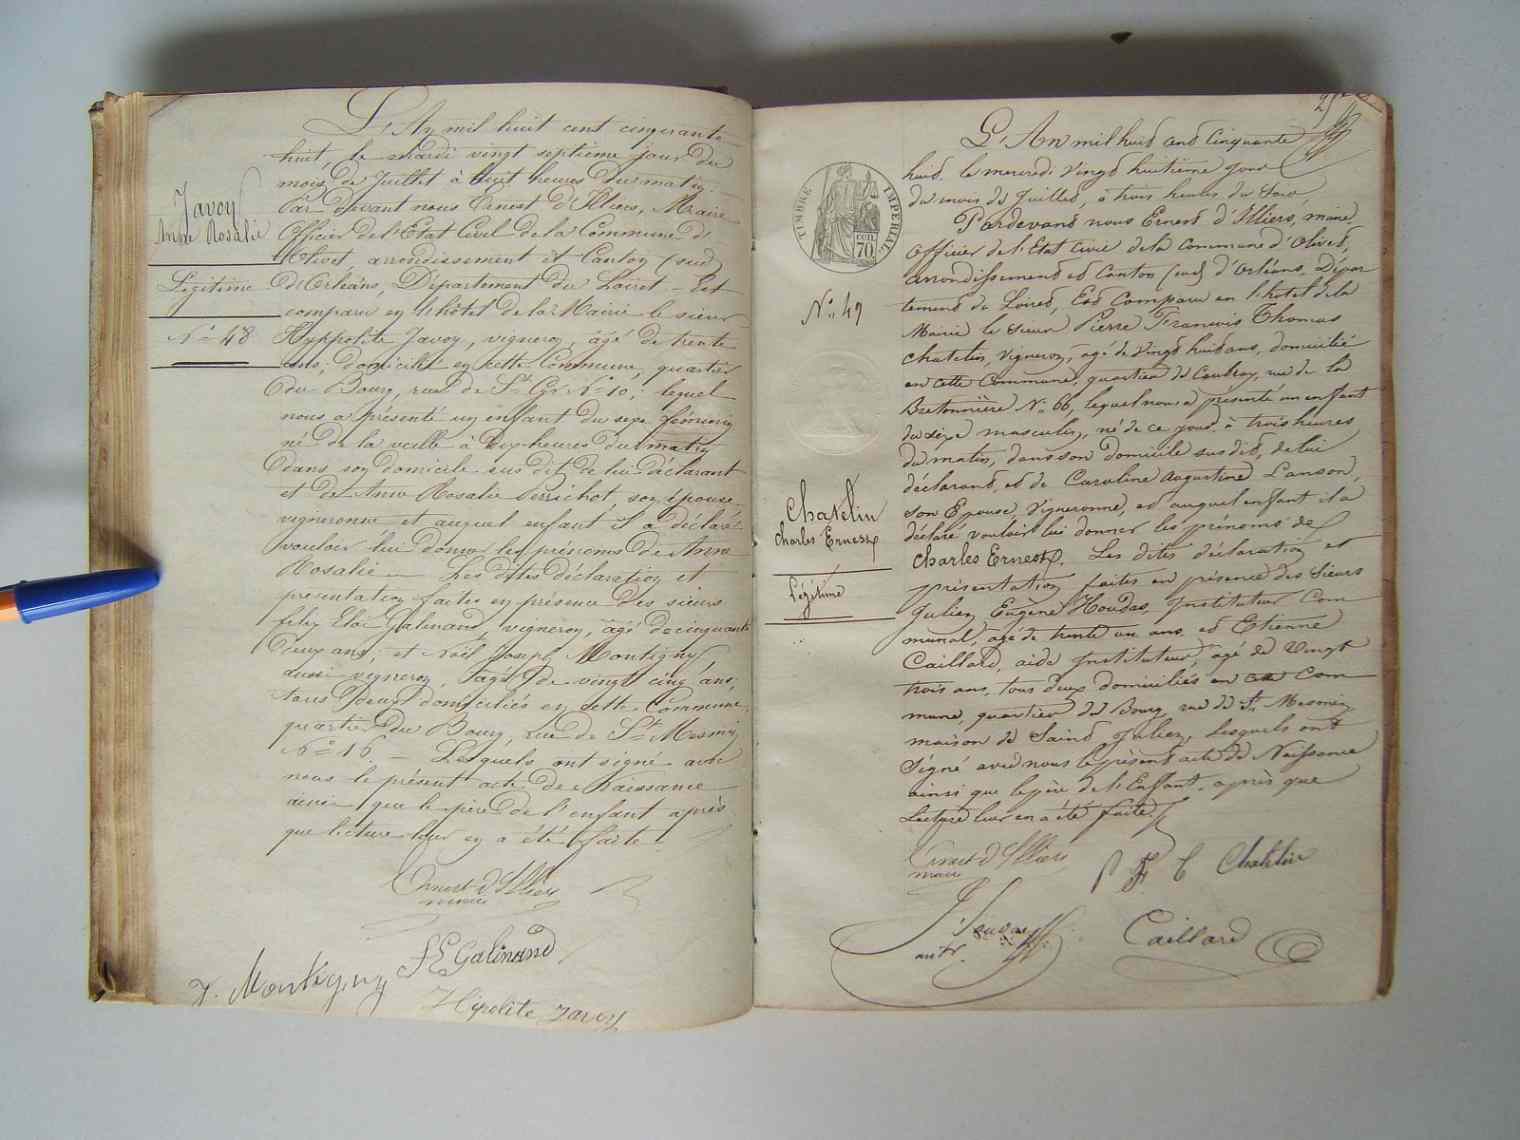 L'An mil huit cent cinquante
huit, le Mardi vingt septième jour du
mois de Juillet à huit heures du matin.
Par devant nous Ernest d'Illiers, Maire
Officier de l'Etat Civil de la Commune d'
Olivet arrondissement et Canton (sud)
d'Orléans, Département du Loiret - Est
comparu en l'hôtel de la Mairie le sieur
Hyppolite Javoy, vigneron, âgé de trente
ans, domicilié en cette Commune, quartier
du Bourg, rue de St N° 10, lequel
nous a présenté un enfant du sexe féminin
né de la veille à dix heures du matin
dans son domicile sus dit, de lui déclarant
et de Anne Rosalie Perrichot son épouse,
vigneronne et auquel enfant il a déclaré
vouloir lui donner les prénoms de Anne
Rosalie — Les dites déclaration et
présentation faites en présence des sieurs
felix Eloi Galinand, vigneron, âgé de cinquante
deux ans, et Noël Joseph Montigny,
aussi vigneron, âgé de vingt cinq ans,
tous deux domiciliés en cette Commune,
quartier du Bourg, rue de St Mesmin
N° 16. — Lesquels ont signé avec
nous le présent acte de Naissance
ainsi que le père de l'enfant après
que lecture leur en a été faite.
Javoy
Anne Rosalie
Légitime
N° 48
Ernest d'Illiers
maire
F E Galinand
J. Montigny
Hipolite Javoy
L'An mil huit cent Cinquante
huit, le mercredi vingt huitième jour
du mois de Juillet, à trois heures du soir,
Pardevant nous Ernest d'Illiers, maire,
Officier de l'Etat Civil de la Commune d'Olivet,
arrondissement et Canton (sud) d'Orléans, Dépar
tement du Loiret, Est Comparu en l'hôtel de la
Mairie le sieur Pierre François Thomas
Chatelin, Vigneron, âgé de vingt huit ans, domicilié
en cette Commune, quartier du Couasnon, rue de la
Bretonnière N° 66, lequel nous a présenté un enfant
du sexe masculin, né de ce jour à trois heures
du matin, dans son domicile susdit, de lui
déclarant, et de Caroline Augustine Lanson,
son Epouse, Vigneronne, et auquel enfant il a
déclaré vouloir lui donner les prénoms de
Charles Ernest. Les dites déclaration et
présentation faites en présence des Sieurs
Julien Eugène Houdas, Instituteur Com
munal, âgé de trente un ans et Etienne
Caillard, aide Instituteur, âgé de vingt
trois ans, tous deux domiciliés en cette Com
mune, quartier du Bourg rue de St Mesmin
maison de Saint Julien, Lesquels ont
Signé avec nous le présent acte de Naissance
ainsi que le père de l'Enfant, après que
Lecture leur en a été faite.
TIMBRE IMPERIAL
CEN.
70
N° 49
Chatelin
Charles Ernest
Légitime
Ernest d'Illiers
maire
P F T Chatelin
Caillard